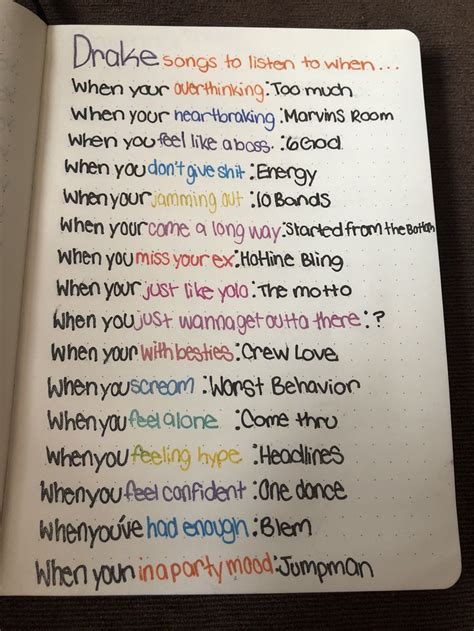 Drake songs to listen to when...
When your overthinking: Too much
When your heartbraking: Marvins Room
When you feel like a boss: 6 God
When you don't give shit: Energy
When your jamming out: 10 Bands
When your come a long way: Started from the Bottom
When you miss your ex: Hotline Bling
When your just like yolo: The motto
When you just wanna get outta there: ?
When your with besties: Crew Love
When you scream: Worst Behavior
When you feel alone: Come thru
When you feeling hype: Headlines
When you feel confident: One dance
When you've had enough: Blem
When your in a party mood: Jumpman